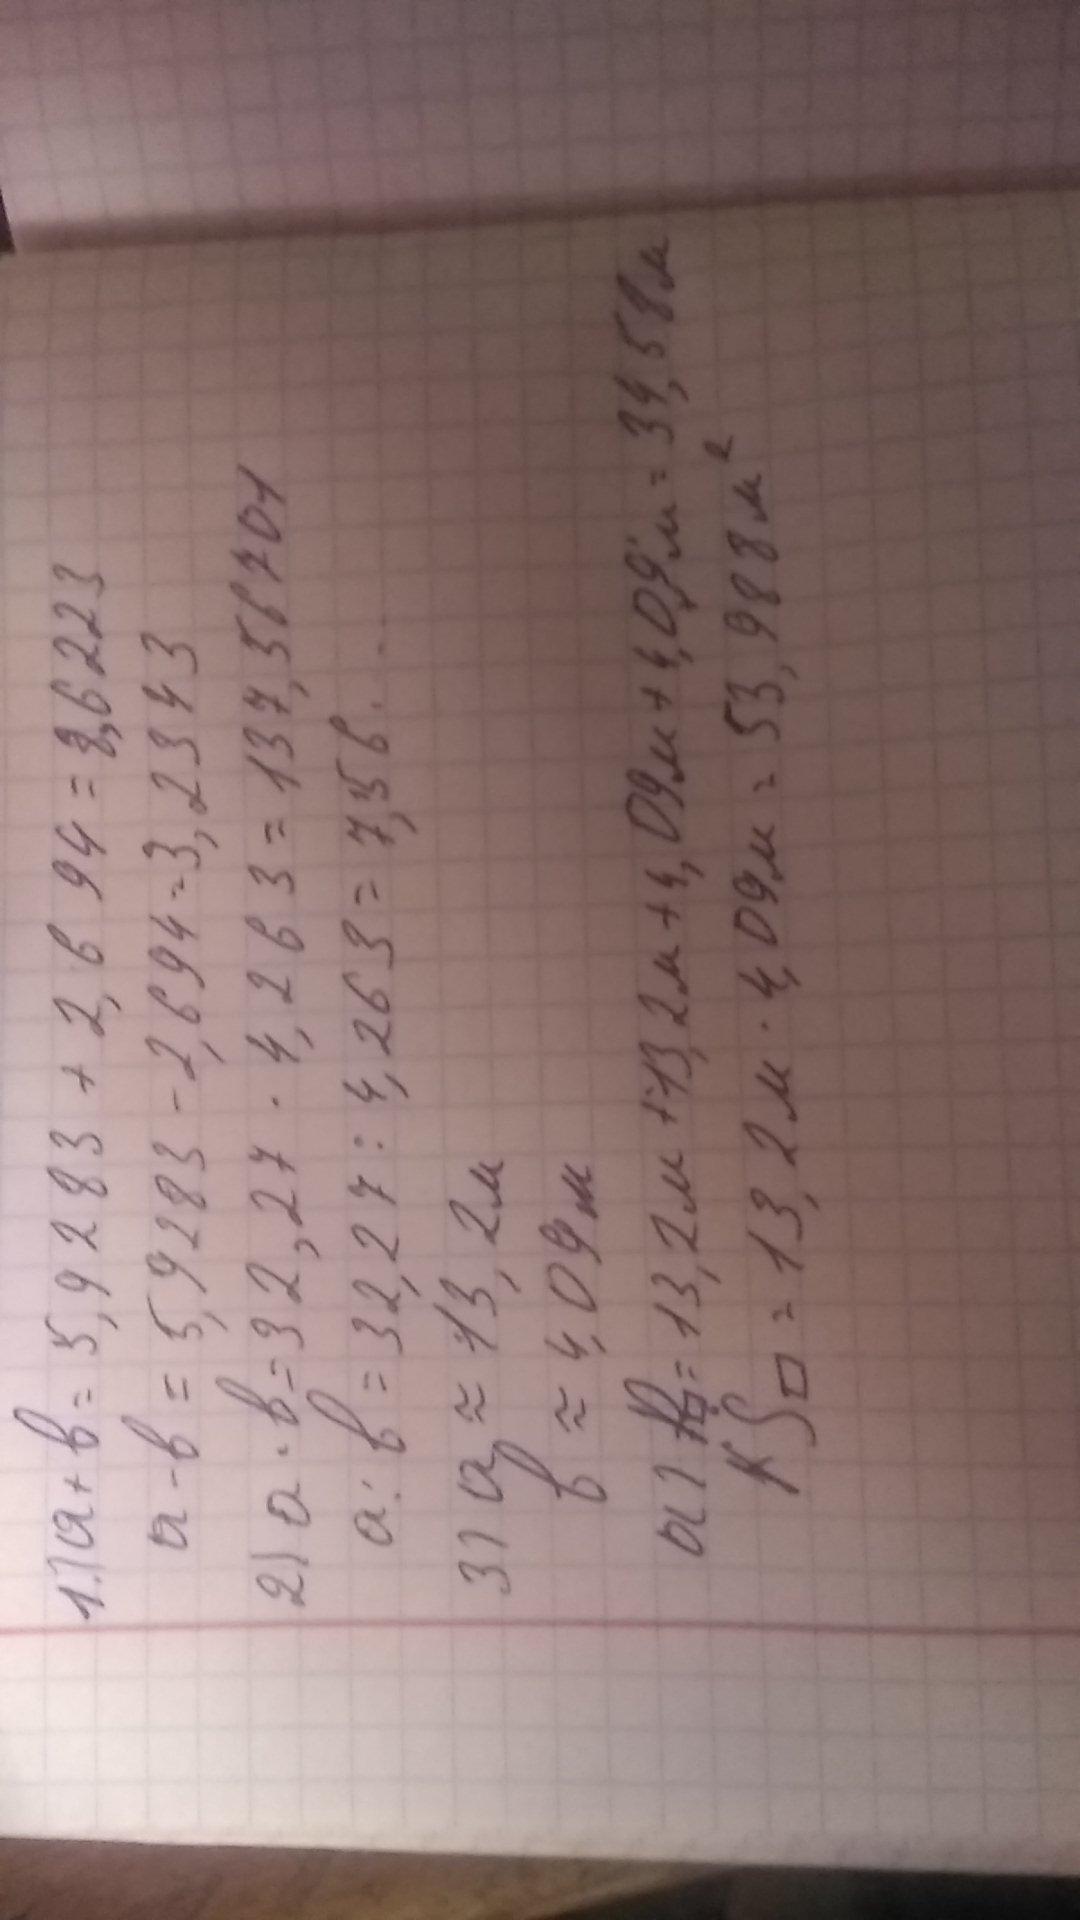 1.) а+в = 5,9283 + 2,694 = 8,6223
а-в = 5,9283 - 2,694 = 3,2343
2) а·в = 32,27 · 4,263 = 137,56701
а:в = 32,27 : 4,263 = 7,56...
3) а ≈ 13,2м
в ≈ 4,09м
а) Р□ = 13,2м + 13,2м + 4,09м + 4,09м = 34,58м
S□ = 13,2м · 4,09м = 53,988м²